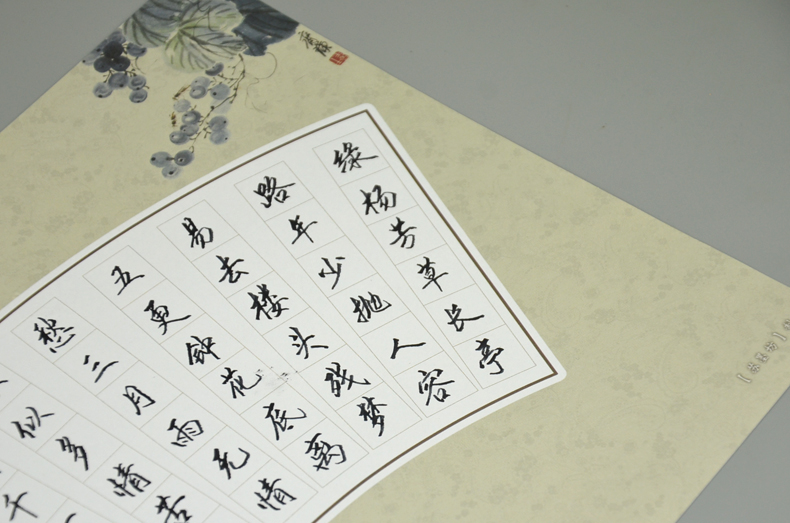 绿杨芳草长亭
路年少抛人容
易去楼头残梦
五更钟花底离
愁三月雨无情
似多情苦
千